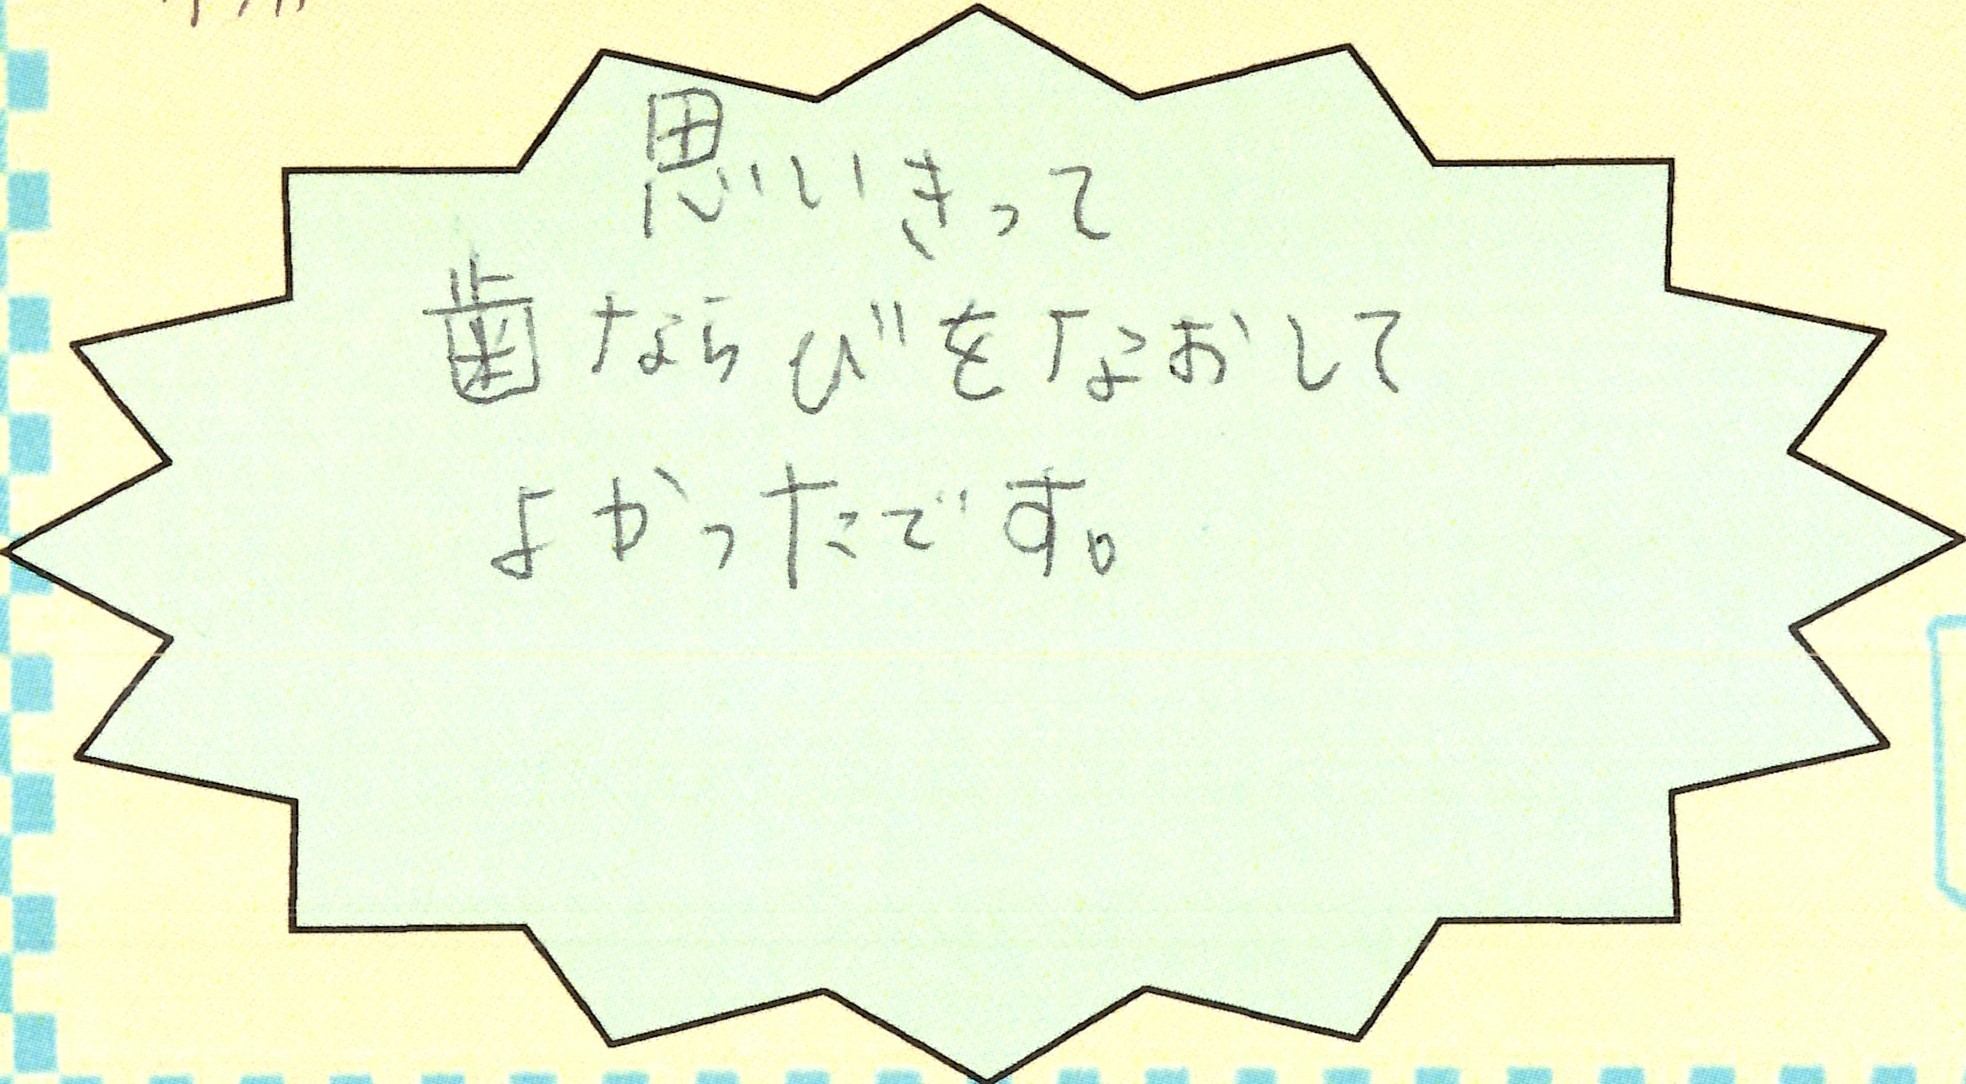 思いきって
歯ならびをなおして
よかったです。